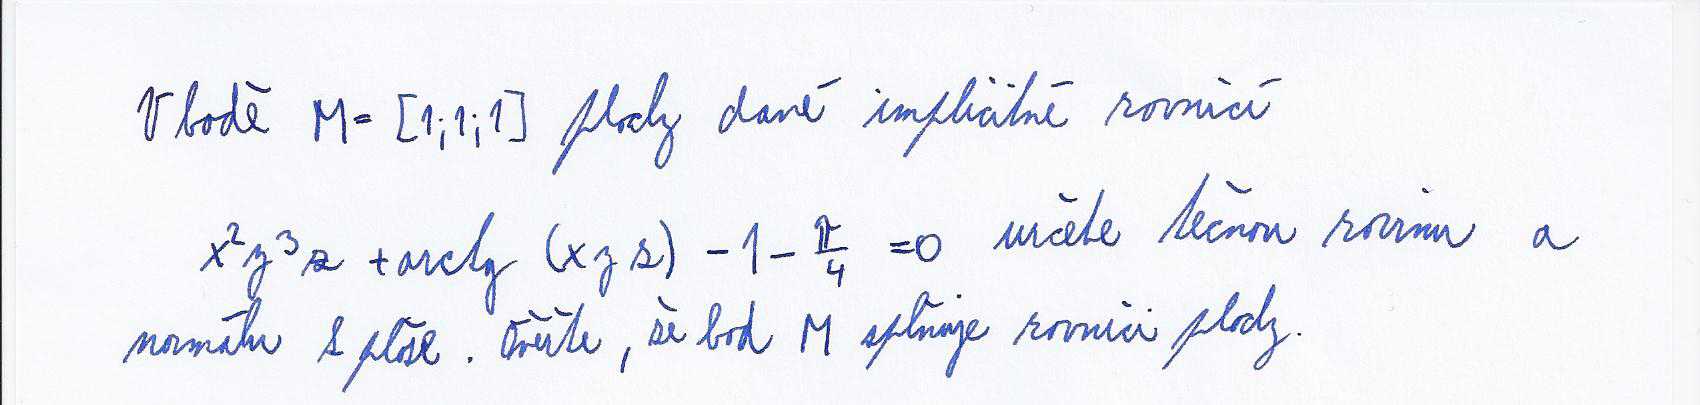 V bodě M = [1;1;1] plochy dané implicitně rovnicí
x²y³z + arctg (xyz) - 1 - π/4 = 0 určete tečnou rovinu a
normálu k ploše. Ověřte, že bod M splňuje rovnici plochy.